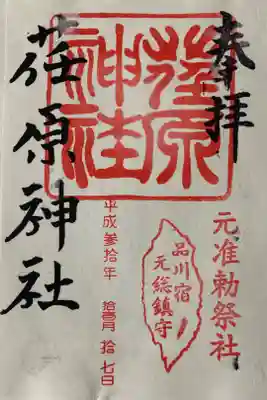 奉拝
元准勅祭社
荏原神社
品川宿
元総鎮守
平成参拾年 拾壱月 拾七日
荏原神社